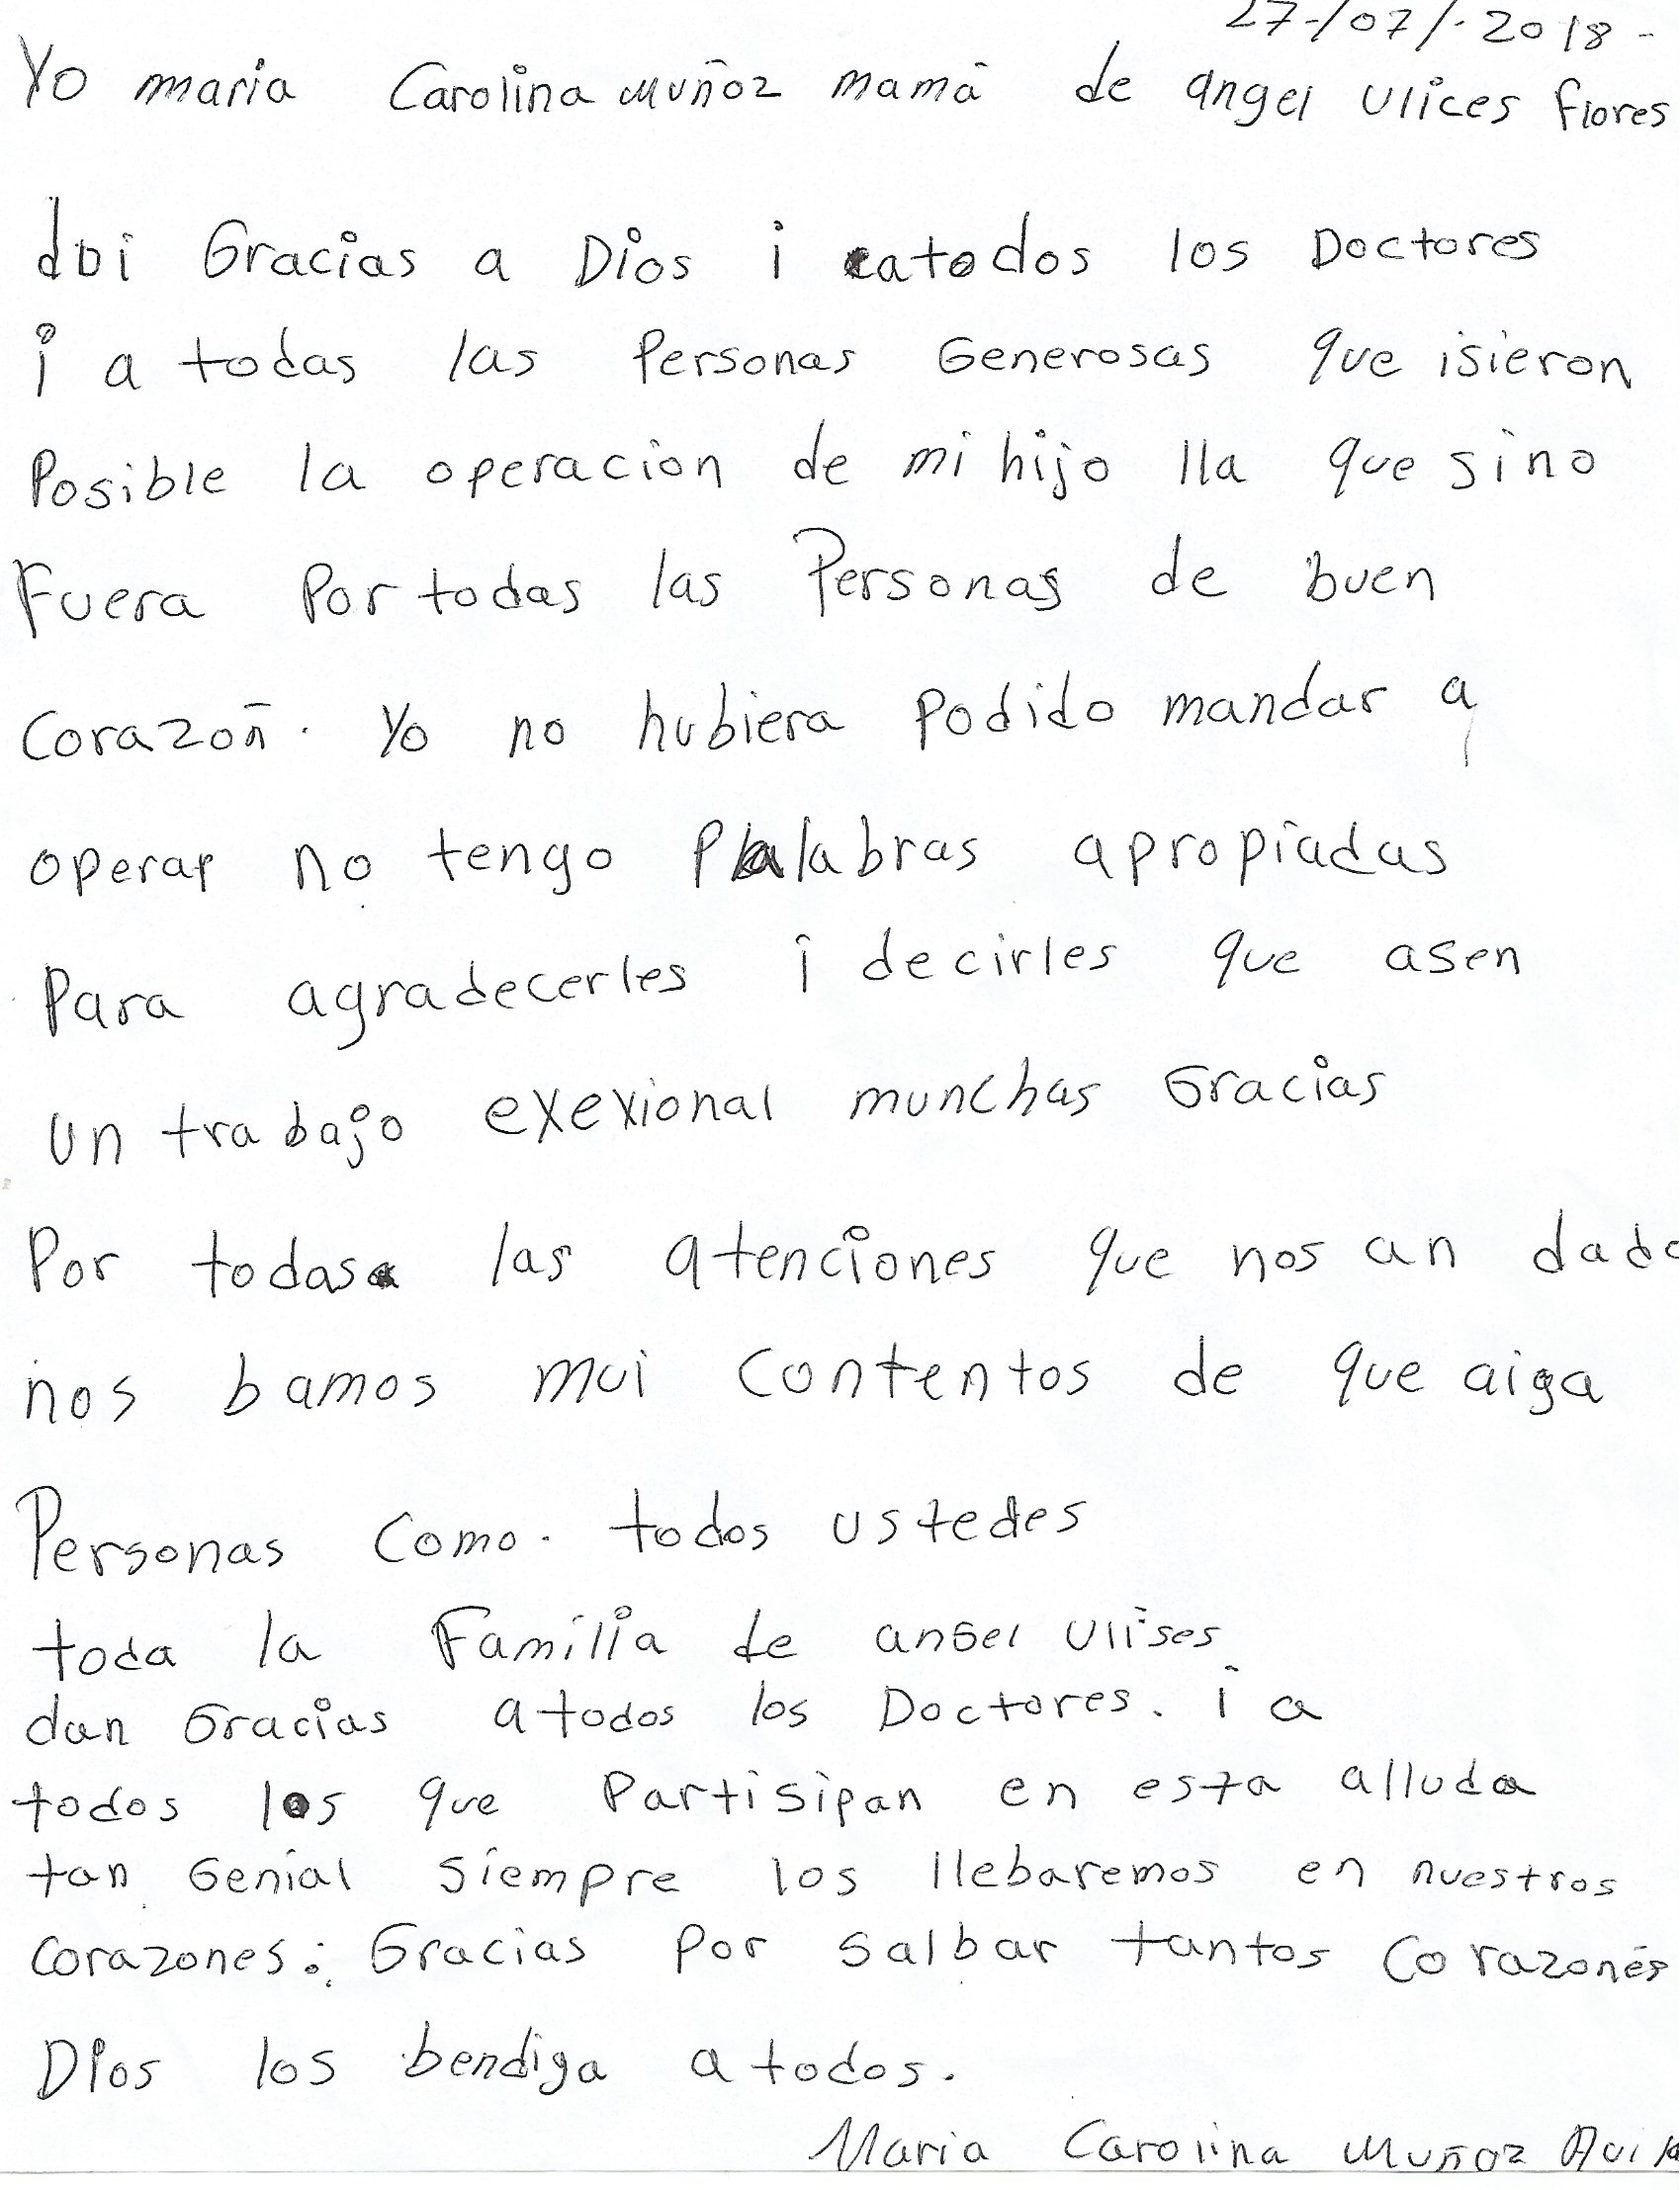 27-/07/-2018-
Yo maria Carolina Muñoz mamá de angel Ulices flores
doi Gracias a Dios i atodos los Doctores
i a todas las Personas Generosas que isieron
Posible la operacion de mi hijo lla que sino
Fuera Por todas las Personas de buen
Corazoñ. Yo no hubiera Podido mandar a
operar no tengo Palabras apropiadas
Para agradecerles i decirles que asen
un trabajo exexional munchas Gracias
Por todas las atenciones que nos an dado
nos bamos mui Contentos de que aiga
Personas Como. todos ustedes
toda la Familia de angel Ulises
dan Gracias a todos los Doctores. i a
todos los que Partisipan en esta alluda
tan Genial siempre los llebaremos en nuestros
Corazones: Gracias Por salbar tantos Corazones
Dios los bendiga a todos.
Maria Carolina Muñoz